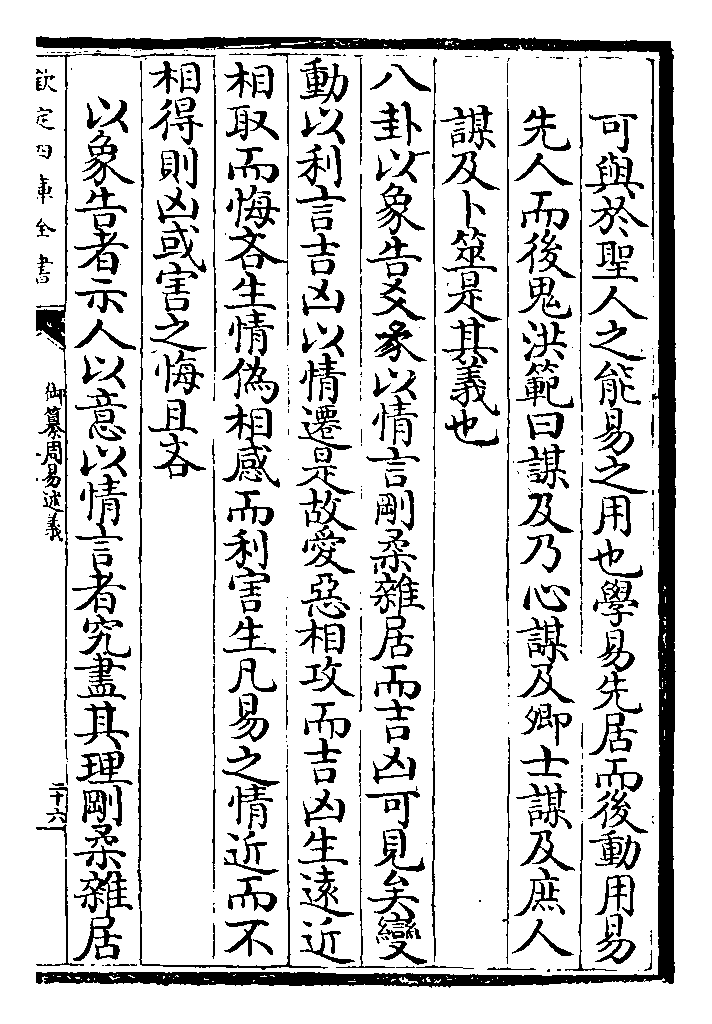 可與於聖人之能易之用也學易先居而後動用易
先人而後鬼洪範曰謀及乃心謀及卿士謀及庶人
謀及卜筮是其義也
八卦以象告爻彖以情言剛柔雜居而吉凶可見矣變
動以利言吉凶以情遷是故愛惡相攻而吉凶生遠近
相取而悔吝生情偽相感而利害生凡易之情近而不
相得則凶或害之悔且吝
以象告者示人以意以情言者究盡其理剛柔雜居
欽定四庫全書
御纂周易述義
二十六